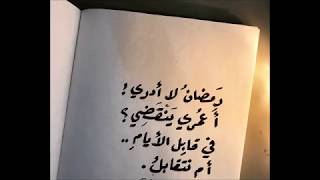 رَمضانُ لا أدري!
أَعُمُري يَنْقَضِي؟
في قابِل الأيامِ..
أم نتقابلُ.